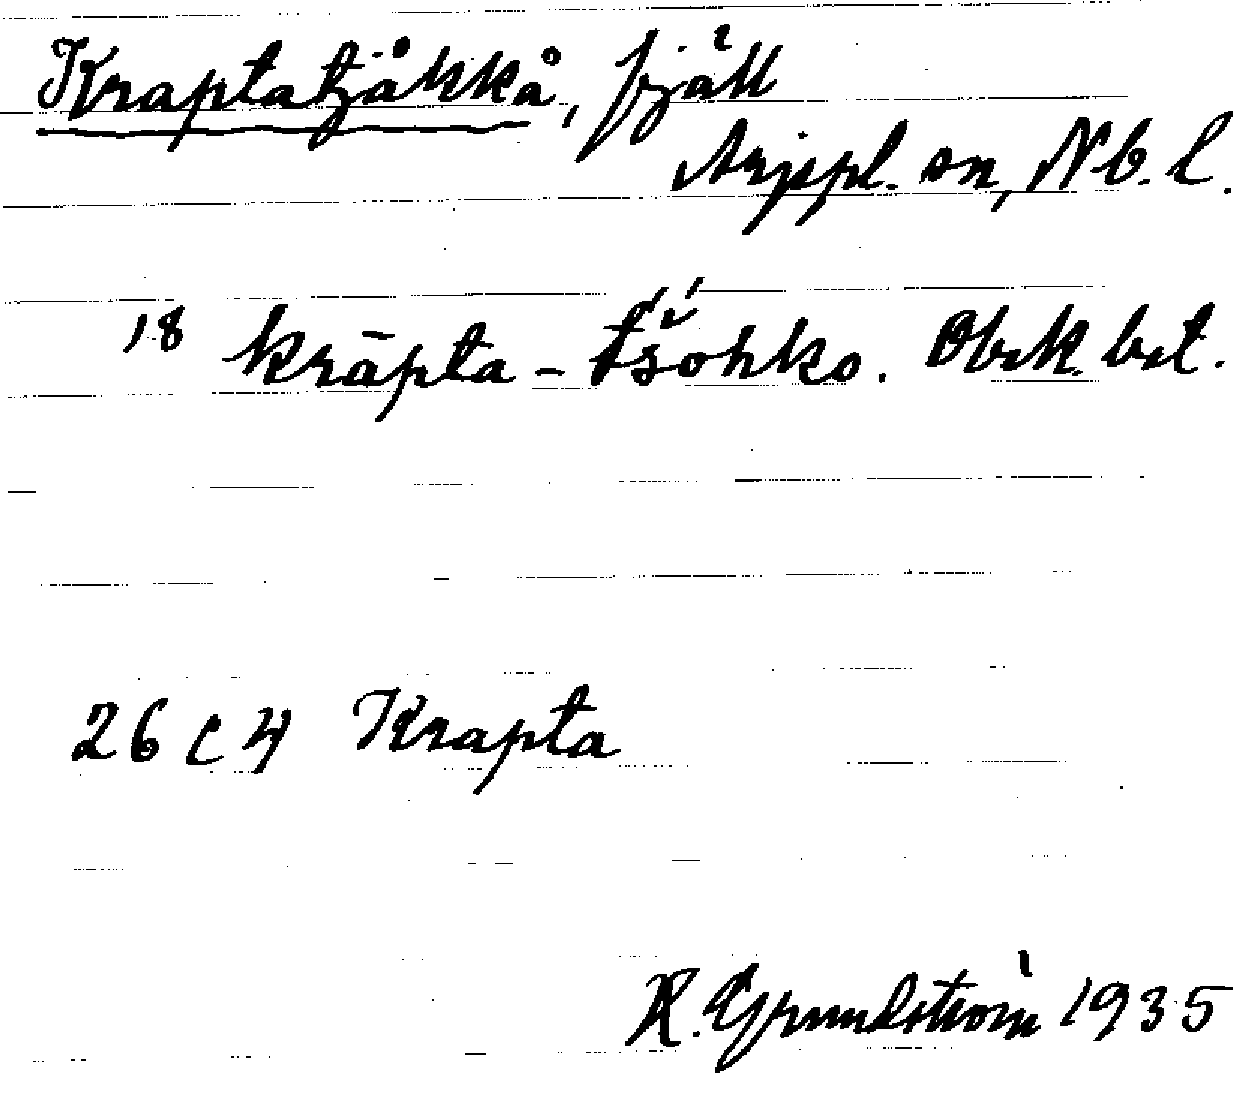 Kraptatjåkkå, fjäll
Arjepl. sn, Nb. l.
18 krāpta-tšo̒hko. Obek. bet.
26 C 4 Krapta
H. Grundström 1935